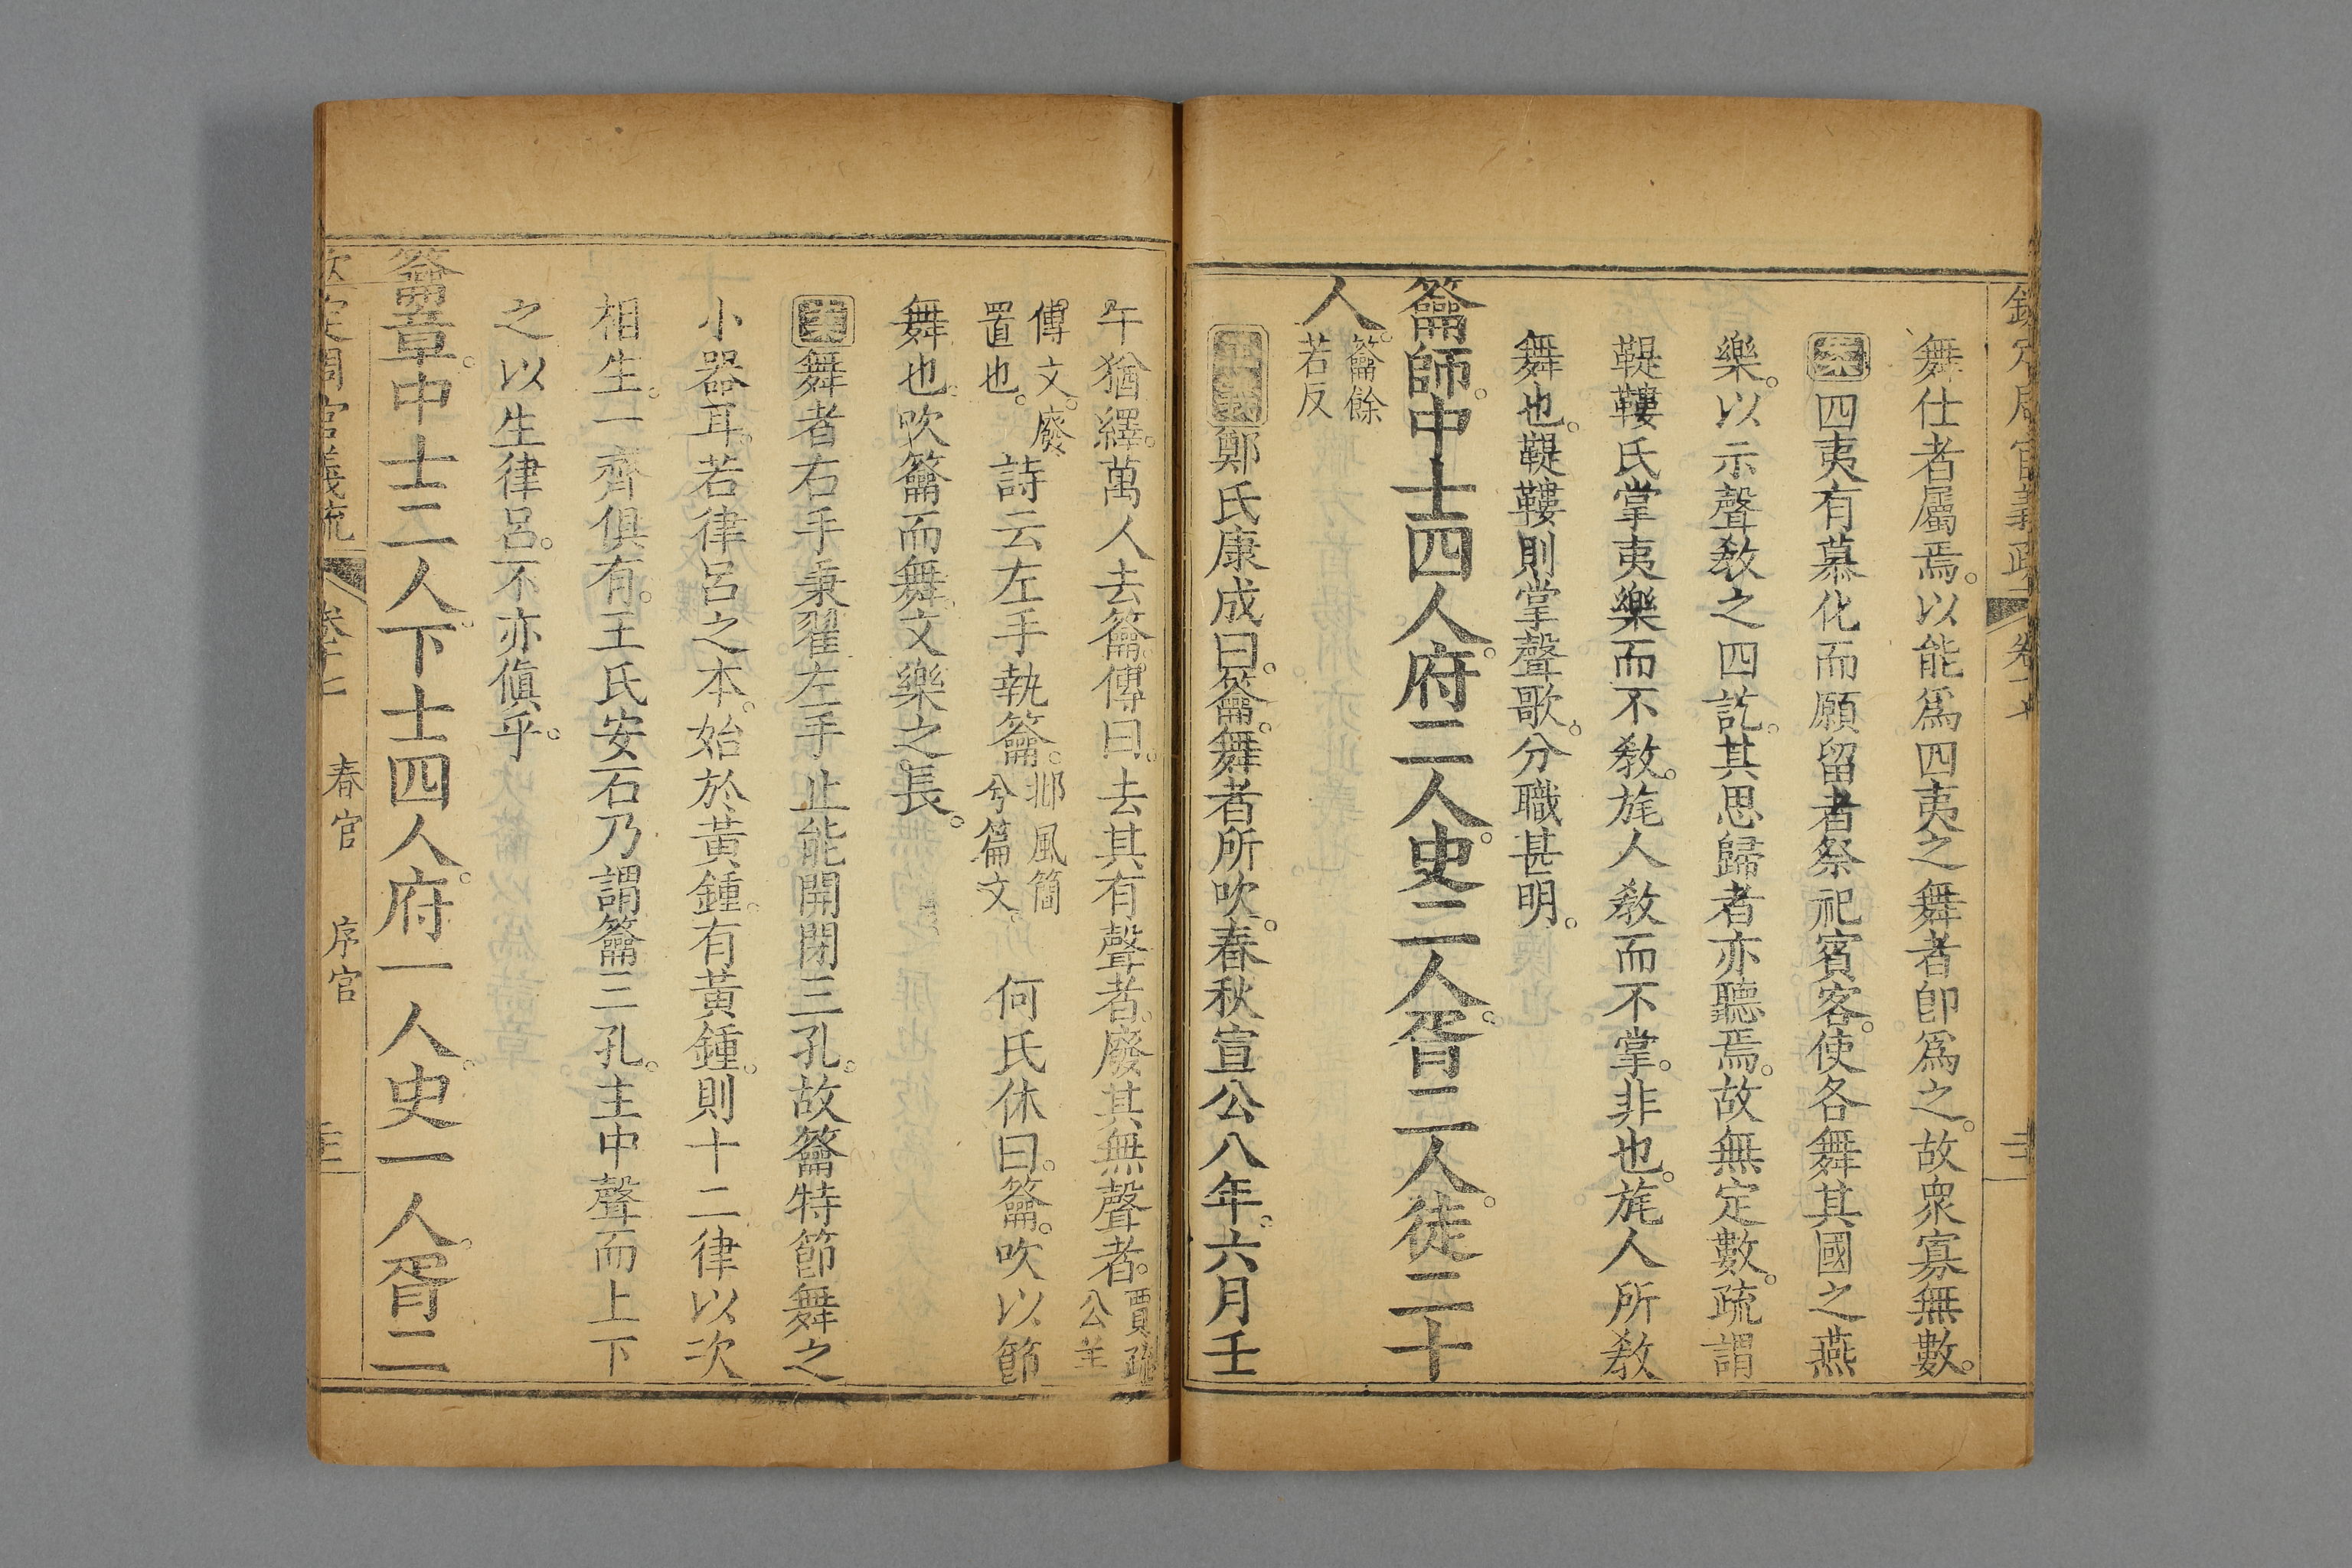 欽定周官義疏 卷十七
舞仕者屬焉。以能爲四夷之舞者卽爲之。故衆寡無數。
案四夷有慕化而願留者祭祀賓客。使各舞其國之燕
樂。以示聲敎之四訖。其思歸者亦聽焉。故無定數。疏謂
鞮鞻氏掌夷樂而不敎。旄人敎而不掌。非也。旄人所敎
舞也。鞮鞻則掌聲歌。分職甚明。
籥師。中士四人。府二人。史二人。胥二人。徒二十
人。籥餘若反
正義鄭氏康成曰。籥。舞者所吹。春秋宣公八年。六月壬
午。猶繹。萬人去籥。傳曰。去其有聲者。廢其無聲者。賈疏公羊
傳文。廢。置也。詩云左手執籥。邶風簡兮篇文。何氏休曰。籥。吹以節
舞也。吹籥而舞。文樂之長。
案舞者右手秉翟左手止能開閉三孔。故籥特節舞之
小器耳。若律呂之本。始於黃鍾。有黃鍾。則十二律以次
相生。一齊俱有。王氏安石乃謂籥三孔。主中聲而上下
之以生律呂。不亦傎乎。
籥章。中士二人。下士四人。府一人。史一人。胥二
欽定周官義疏 卷十七 春官 序官